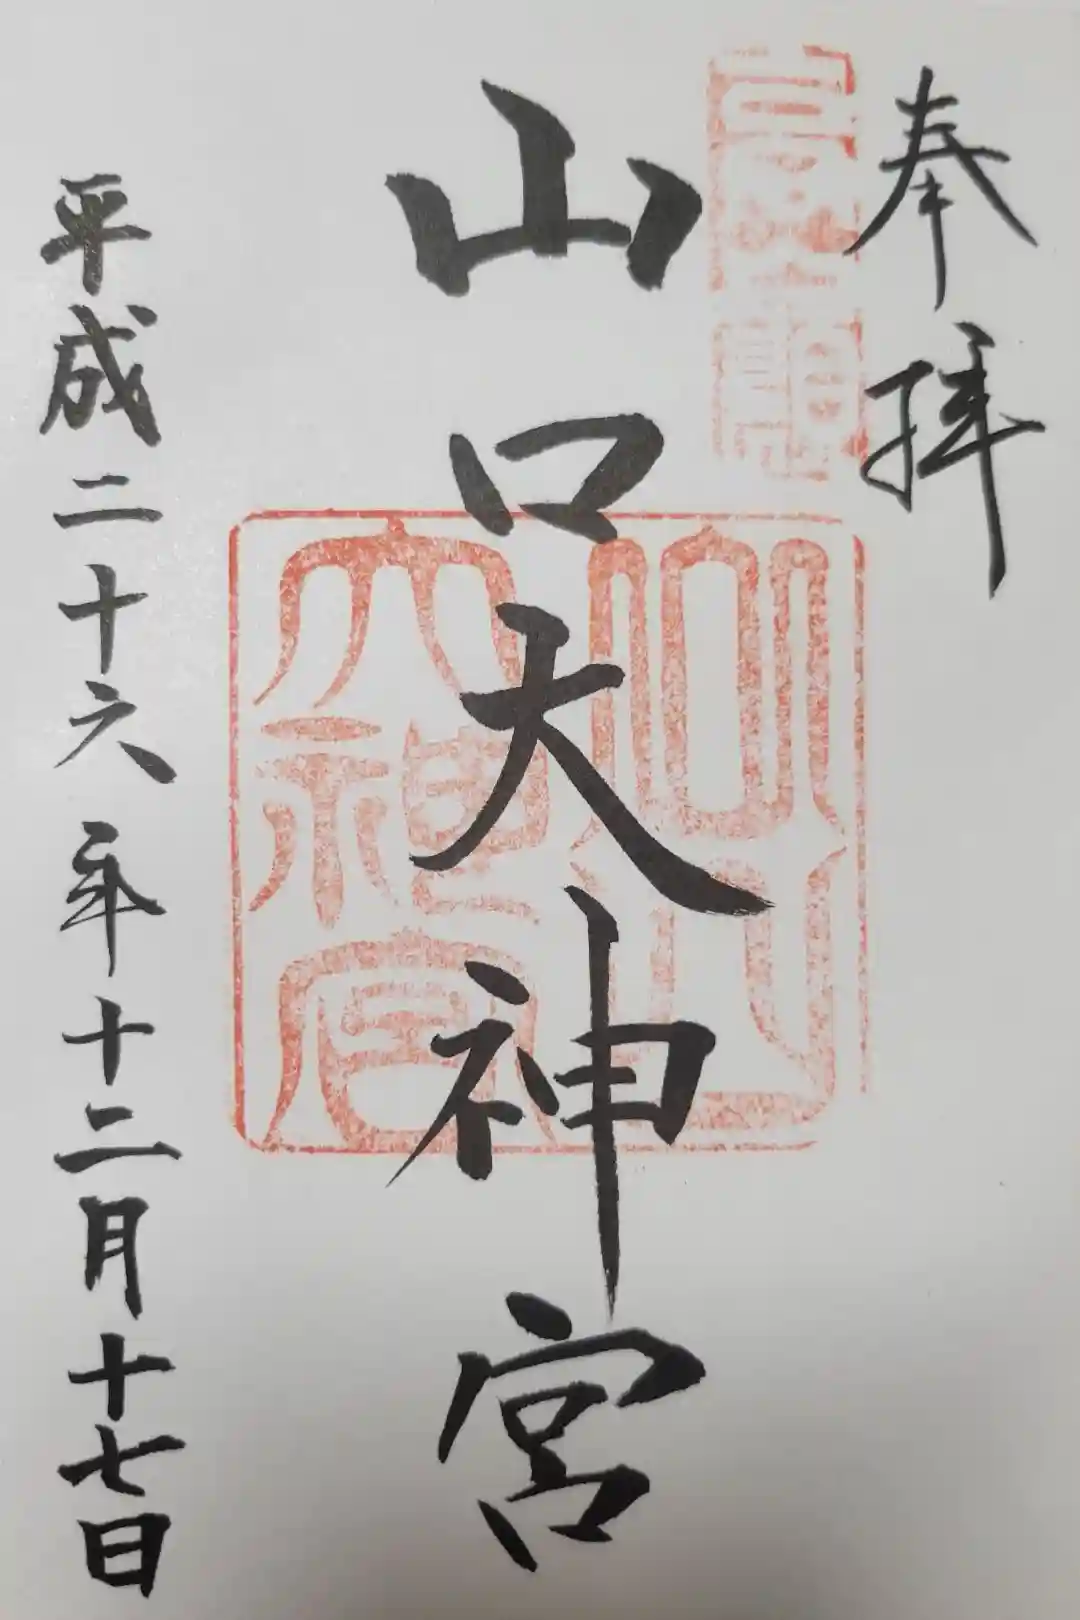 奉拝
山口大神宮
山口大神宮
平成二十六年十二月十七日